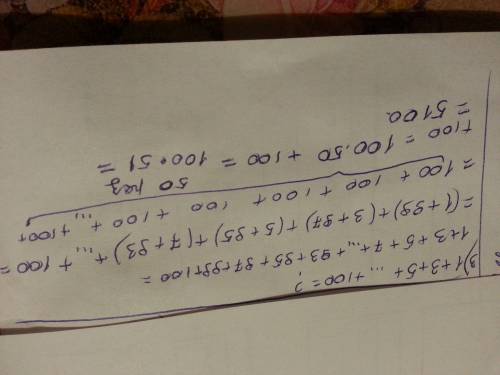 3) 1+3+5+ ... +100 = ?
1+3+5+7+...+93+95+97+99+100 =
=(1+99)+(3+97)+(5+95)+(7+93)+...+100=
=100+100+100+100+100+...+100+
50 раз
+100 = 100.50 + 100 = 100•51 =
= 5100